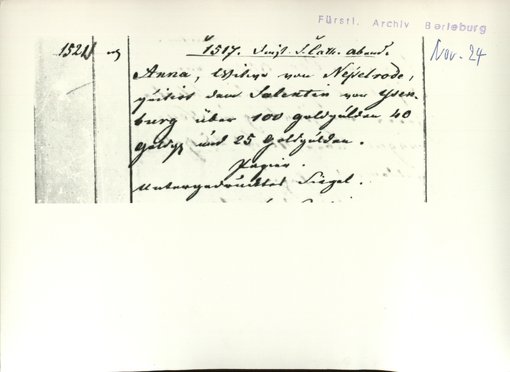 Fürstl. Archiv Berleburg
Nov. 24
1517. S. Cath. abend.
Anna, Witwe von Nesselrode,
quitirt dem Salentin von Ysen-
burg über 100 goldgülden 40
und 25 Goldgülden.
Papier.
Untergedrucktes Siegel.